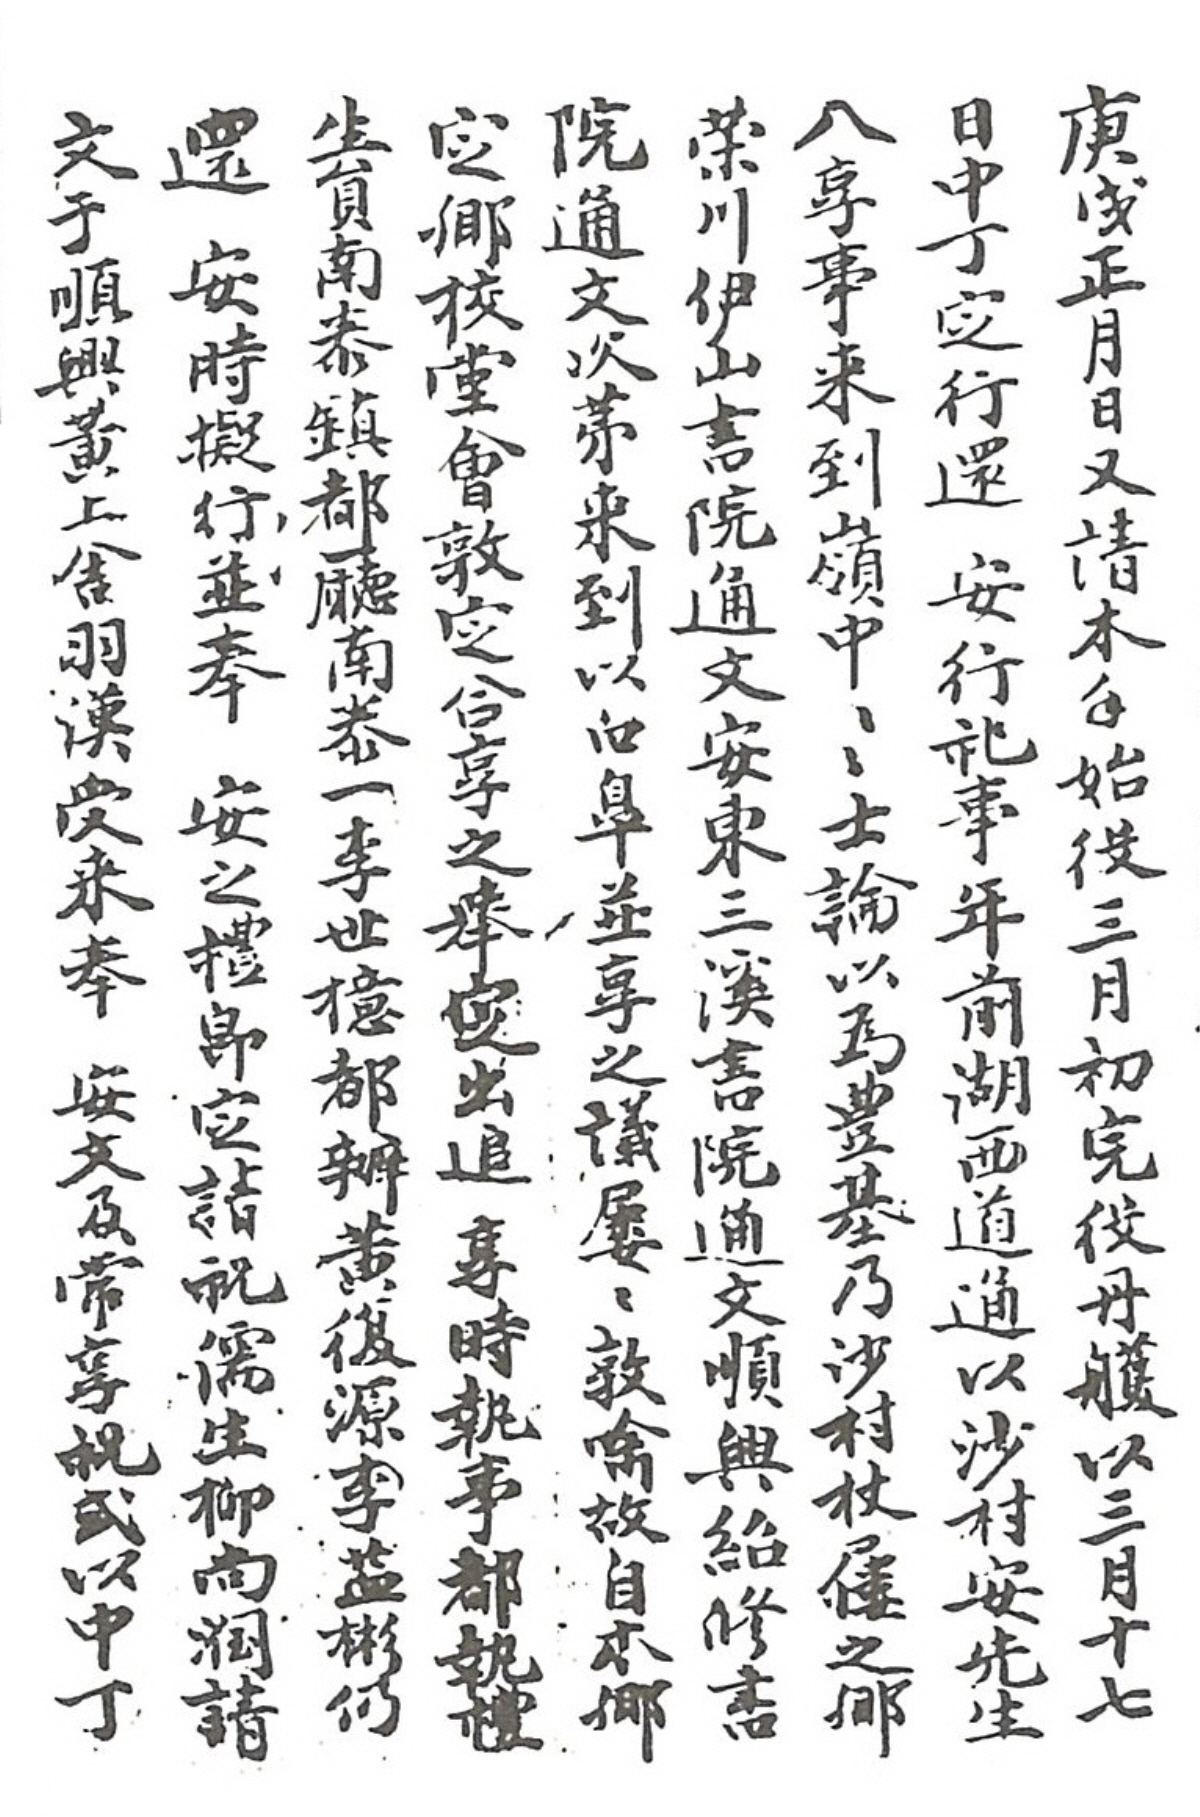 庚戌正月日又請木手始役三月初完役丹雘以三月十七
日中丁定行還 安行祀事年前湖西道通以沙村安先生
八享事来到嶺中〻士論以為豊基乃沙村杖屨之鄉
榮川伊山書院通文安東三溪書院通文順興紹修書
院通文次苐来到以白阜並享之議屢〻敦喩故自本鄉
定鄉校堂會敦定合享之舉定出追 享時執事都執禮
生員南泰鎮都廳南泰一李世檍都辦黃復源李藎彬仍
還 安時擬行並奉 安之禮卽定請祝儒生柳尚潤請
文于順興黃上舍羽漢受来奉 安文及常享祝式以中丁